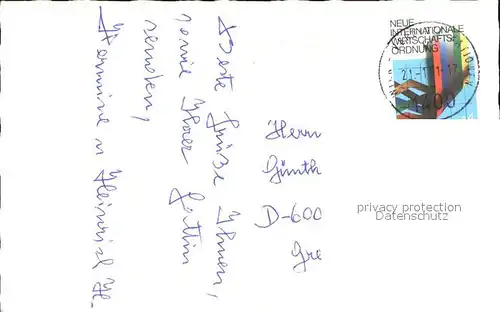 NEUE
INTERNATIONALE
WIRTSCHAFTS-
ORDNUNG
1400
Beste Grüße Ihnen,
sowie Ihrer Gattin
senden,
Hermine u Heinrich H.
Herrn
Günth
D-600
Gre
privacy protection
Datenschutz